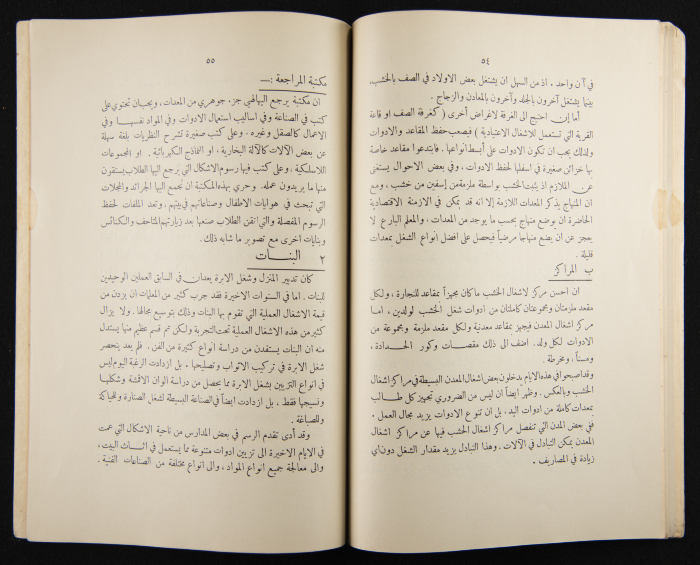 ٥٤
في آن واحد . اذ من السهل ان يشتغل بعض الاولاد في الصف بالخشب،
بينما يشتغل آخرون بالجلد وآخرون بالمعادن والزجاج .
أما إن احتيج الى الغرفة لاغراض أخرى ( كغرفة الصف او قاعة
القرية التي تستعمل للاشغال الاعتيادية ) فيصعب حفظ المقاعد والادوات
ولذلك يجب ان تكون الادوات على أبسط انواعها . فابتدعوا مقاعد خاصة
بها خزائن صغيرة في اسفلها لحفظ الادوات ، وفي بعض الاحوال يستغنى
عن الملازم اذ يثبت الخشب بواسطة ملزمة من إسفين من خشب ، ومع
ان المنهاج يذكر المعدات اللازمة إلا انه قد يمكن في الازمنة الاقتصادية
الحاضرة ان يوضع منهاج بحسب ما يوجد من المعدات ، والمعلم البارع لا
يعجز عن ان يضع منهاجاً مرضياً فيحصل على افضل انواع الشغل بمعدات
قليلة .
ب المراكز
ان احسن مركز لاشغال الخشب ما كان مجهزاً بمقاعد للنجارة ، ولكل
مقعد ملزمتان ومجموعتان كاملتان من ادوات شغل الخشب لولدين ، اما
مركز اشغال المعدن فيجهز بمقاعد معدنية ولكل مقعد ملزمة ومجموعة من
الادوات لكل ولد . اضف الى ذلك مقصات وكور الحدادة ،
ومسناً ، ومخرطة .
وقد اصبحوا في هذه الايام يدخلون بعض اشغال المعدن البسيطة في مراكز اشغال
الخشب وبالعكس . وظهر ايضاً ان ليس من الضروري تجهيز كل طالب
بمعدات كاملة من ادوات اليد ، بل ان تنوع الادوات يزيد مجال العمل .
ففي بعض المدن التي تنفصل مراكز اشغال الخشب فيها عن مراكز اشغال
المعدن يمكن التبادل في الآلات . وهذا التبادل يزيد مقدار الشغل دون اي
زيادة في المصاريف .
٥٥
مكتبة المراجعة :—
ان مكتبة يرجع اليها لهي جزء جوهري من المعدات ، ويجب ان تحتوي على
كتب في الصناعة وفي اساليب استعمال الادوات وفي المواد نفسها وفي
الاعمال كالصقل وغيره ، وعلى كتب صغيرة تشرح النظريات بلغة سهلة
عن بعض الآلات كالآلة البخارية ، او النماذج الكهربائية . او المجموعات
اللاسلكية ، وعلى كتب فيها رسوم الاشكال التي يرجع اليها الطلاب يستقون
منها ما يريدون عمله . وحري بهذه المكتبة ان تجمع اليها الجرائد والمجلات
التي تبحث في هوايات الاطفال وصناعاتهم في بيتهم ، وتعد الملفات لحفظ
الرسوم المفصلة والتي اتقن الطلاب صنعها بعد زيارتهم المتاحف والكنائس
وبنايات اخرى مع تصوير ما شابه ذلك .
٢ البنات
كان تدبير المنزل وشغل الابرة يعدان في السابق العملين الوحيدين
للبنات . اما في السنوات الاخيرة فقد جرب كثير من المعلمات ان يزدن من
قيمة الاشغال العملية التي تقوم بها البنات وذلك بتوسيع مجالها . ولا يزال
كثير من هذه الاشغال العملية تحت التجربة ولكن تم قسم عظيم منها يستدل
منه ان البنات يستفدن من دراسة انواع كثيرة من الفن . فلم يعد ينحصر
شغل الابرة في تركيب الاثواب وتصليحها ، بل ازدادت الرغبة اليوم ليس
في انواع التزيين بشغل الابرة مما يحصل من دراسة الوان الاقمشة وشكلها
ونسيجها فقط ، بل ازدادت ايضاً في الصناعة البسيطة لشغل الصنارة والحياكة
وللصباغة .
وقد أدى تقدم الرسم في بعض المدارس من ناحية الاشكال التي عمت
في الايام الاخيرة الى تزيين ادوات متنوعة مما يستعمل في اثاث البيت ،
والى معالجة جميع انواع المواد ، والى انواع مختلفة من الصناعات الفنية .